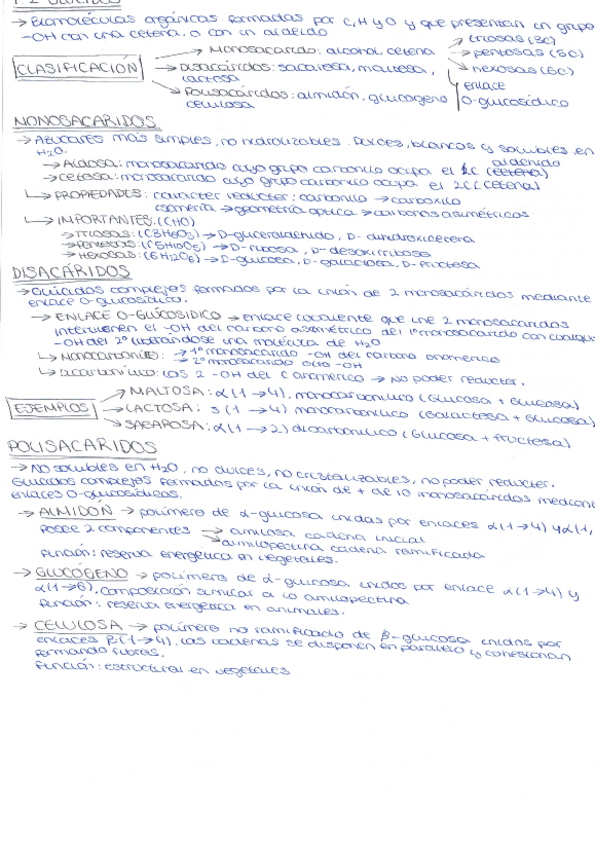 1.2 GLÚCIDOS
→ Biomoléculas orgánicas formadas por C, H y O y que presentan un grupo
-OH con una cetena o con un aldeido
→ Monosacárido: alcohol, cetena
→ triosas (3C)
→ pentosas (5C)
→ hexosas (6C)
CLASIFICACIÓN
→ Disacáridos: sacarosa, maltosa,
lactosa
→ Polisacáridos: almidón, glucogeno
celulosa
enlace
O-glucosídico
MONOSACARIDOS
→ Azucares más simples, no hidrolizables. Dulces, blancos y solubles en
H2O.
→ Aldosa: monosacarido cuyo grupo carbonilo ocupa el 1C (cetena)
aldehido
→ Cetosa: monosacarido cuyo grupo carbonilo ocupa el 2C (cetena)
↳ PROPIEDADES: caracter reductor: carbonilo → carboxilo
isomería → geometría optica → carbonos asimétricos
↳ IMPORTANTES: (CHO)
→ Triosas: (C3H6O3) → D-gliceraldehido, D-dihidroxicetena
→ Pentosas: (C5H10O5) → D-ribosa, D-desoxirribosa
→ Hexosas: (6H12O6) → D-glucosa, D-galactosa, D-fructosa
DISACÁRIDOS
→ Glúcidos complejos formados por la unión de 2 monosacáridos mediante
enlace O-glucosídico.
→ ENLACE O-GLUCOSIDICO → enlace covalente que une 2 monosacaridos
intervienen el -OH del carbono asimétrico del 1º monosacarido con cualquier
-OH del 2º liberandose una molécula de H2O
↳ Monocarbonílico: → 1º monosacarido -OH del carbono anomerico
→ 2º monosacarido otro -OH
↳ Dicarbonílico: los 2 -OH del C anomerico → No poder reductor.
EJEMPLOS
→ MALTOSA: α(1→4), monocarbonilico (Glucosa + Glucosa)
→ LACTOSA: β(1→4) monocarbonilico (Galactosa + Glucosa)
→ SACAROSA: α(1→2) dicarbonílico (Glucosa + fructosa)
POLISACARIDOS
→ No solubles en H2O, no dulces, no cristalizables, no poder reductor.
Glucidos complejos formados por la unión de + de 10 monosacáridos mediante
enlaces O-glucosídicos.
→ ALMIDÓN → polímero de α-glucosa unidas por enlaces α(1→4) y α(1,
Posee 2 componentes → amilosa cadena inicial
→ amilopectina cadena ramificada
Función: reserva energética en vegetales.
→ GLUCÓGENO → polímero de α-glucosa unidos por enlace α(1→4) y
α(1→6), composición similar a la amilopectina
Función: reserva energetica en animales.
→ CELULOSA → polímero no ramificado de β-glucosa unidas por
enlaces β(1→4). Las cadenas se disponen en paralelo y cohesionan
formando fibras.
Función: estructural en vegetales